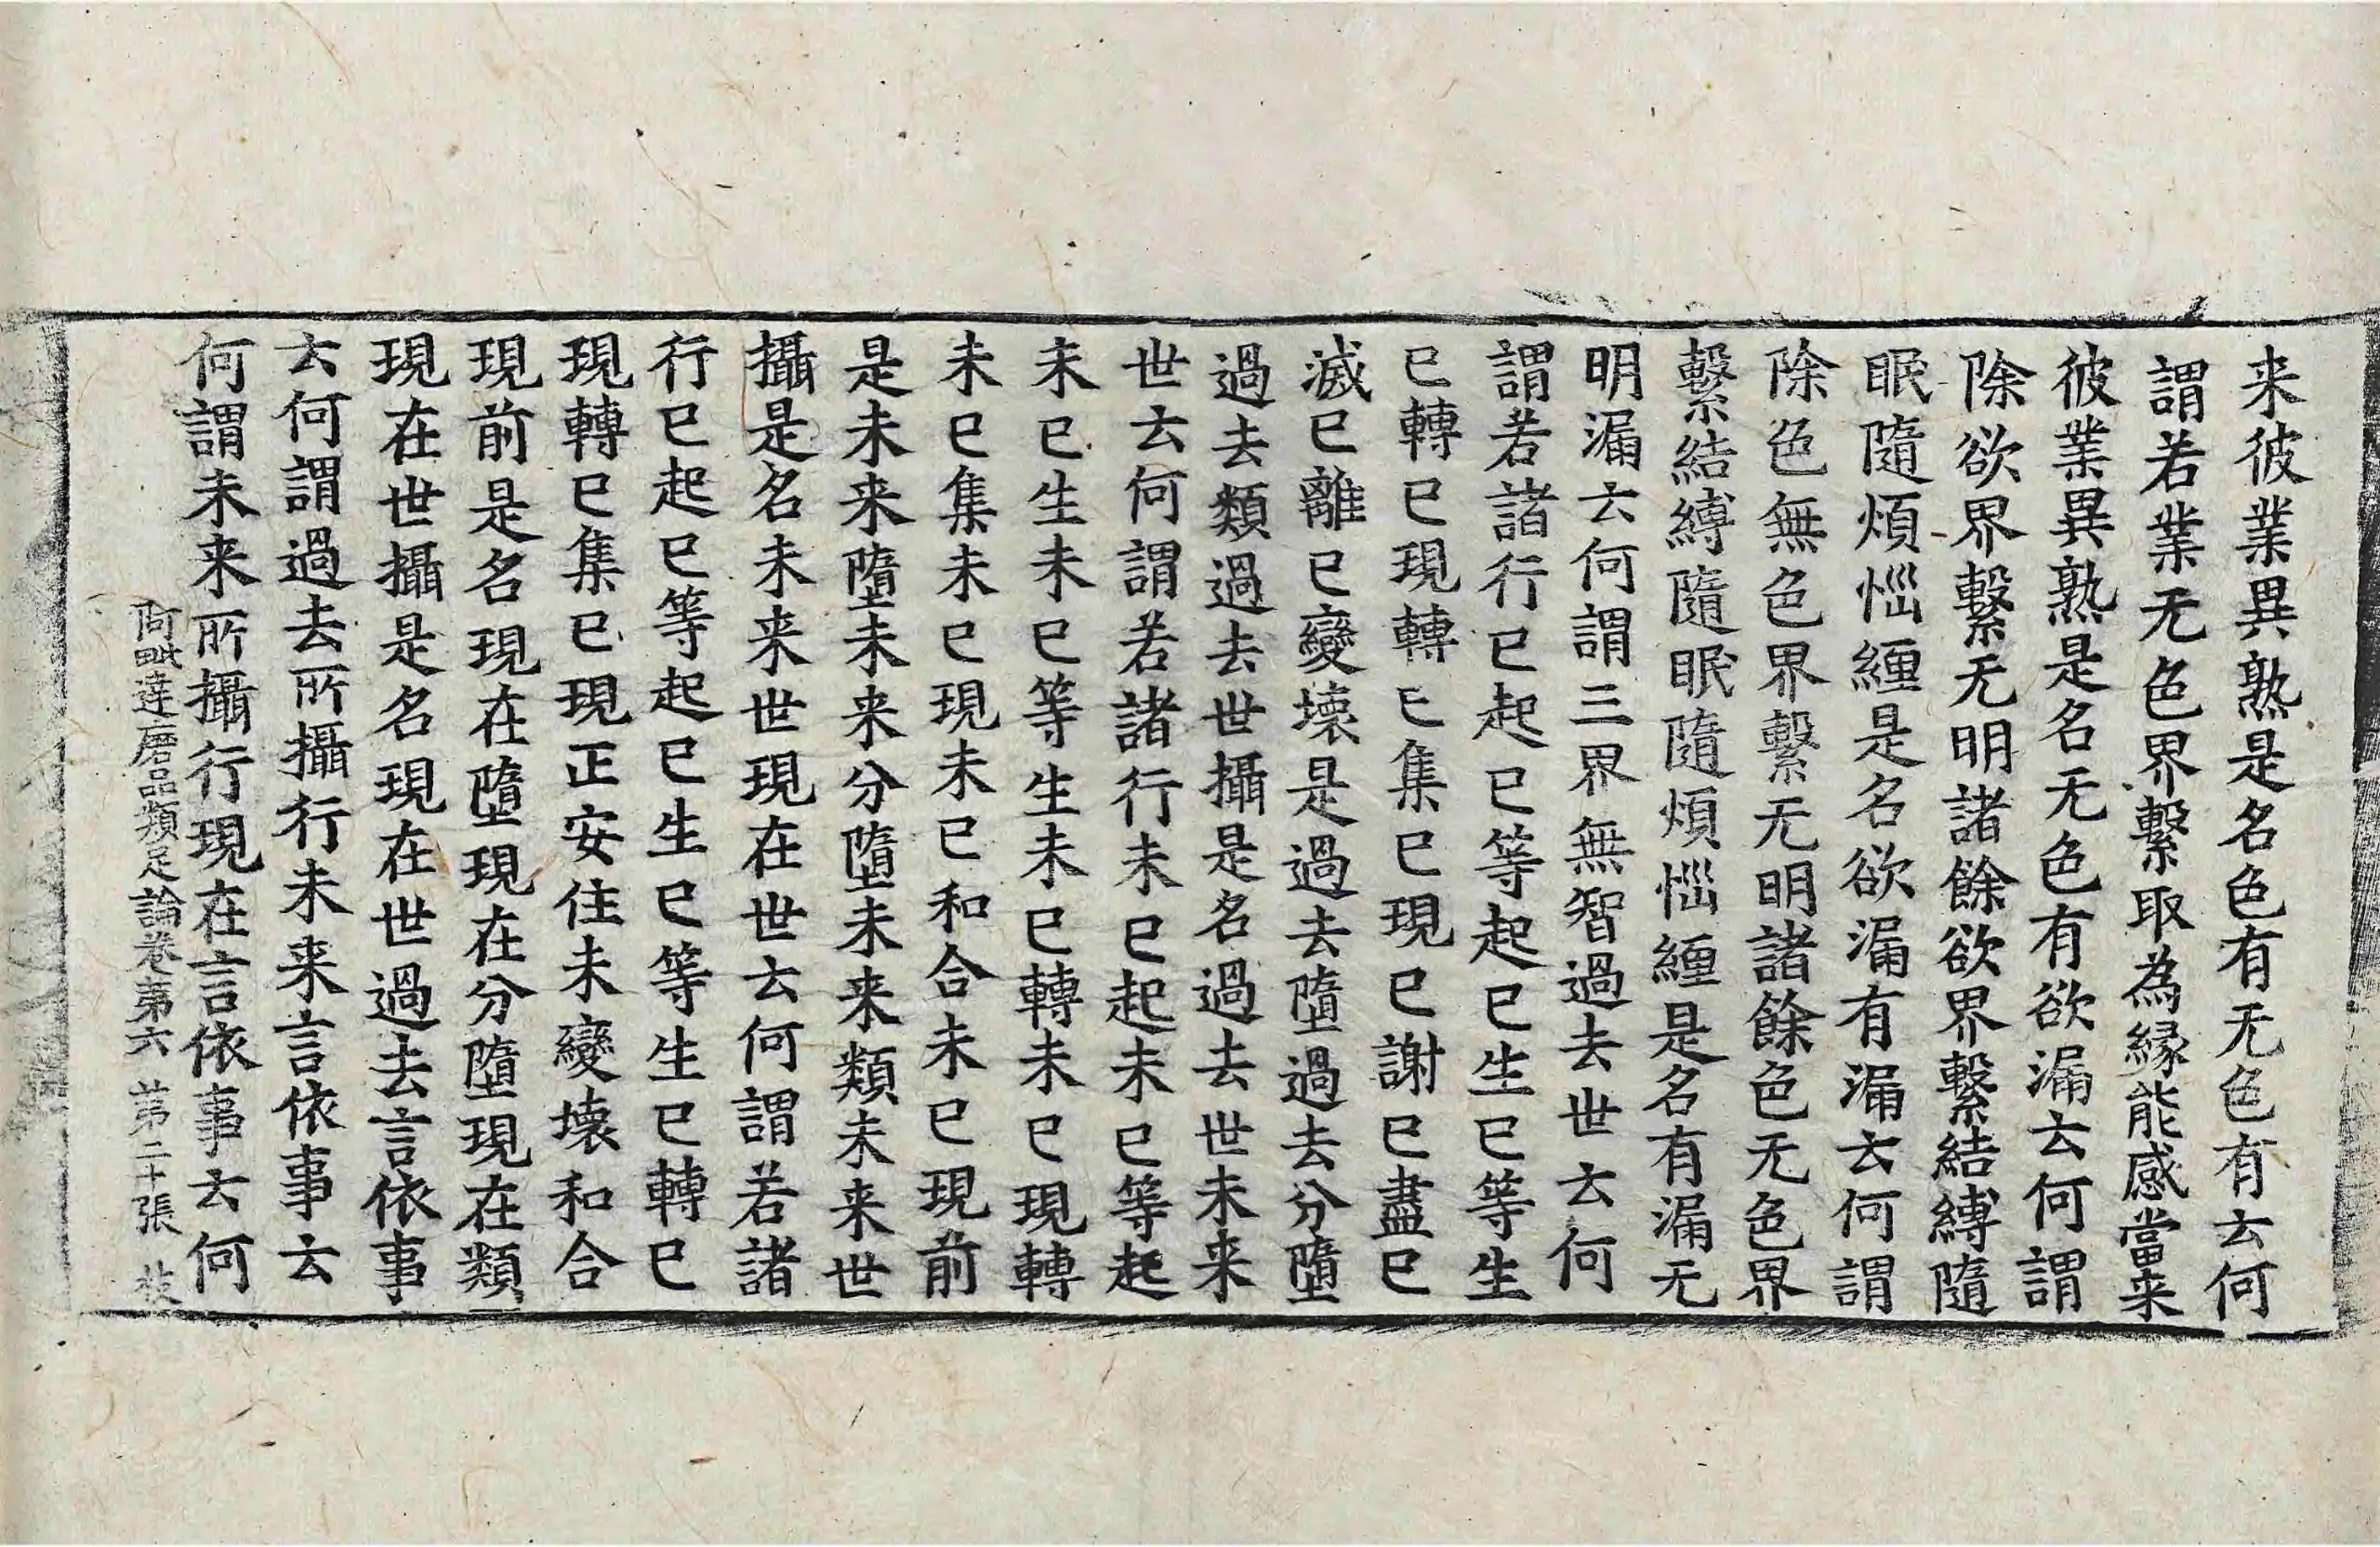 来彼業異熟是名色有无色有云何
謂若業无色界繫取為縁能感當来
彼業異熟是名无色有欲漏云何謂
除欲界繫无明諸餘欲界繫結縛隨
眠隨煩惱纏是名欲漏有漏云何謂
除色無色界繫无明諸餘色无色界
繫結縛隨眠隨煩惱纏是名有漏无
明漏云何謂三界無智過去世云何
謂若諸行已起已等起已生已等生
已轉已現轉已集已現已謝已盡已
滅已離已變壞是過去墮過去分墮
過去類過去世攝是名過去世未来
世云何謂若諸行未已起未已等起
未已生未已等生未已轉未已現轉
未已集未已現未已和合未已現前
是未来墮未来分墮未来類未来世
攝是名未来世現在世云何謂若諸
行已起已等起已生已等生已轉已
現轉已集已現正安住未變壞和合
現前是名現在墮現在分墮現在類
現在世攝是名現在世過去言依事
云何謂過去所攝行未来言依事云
何謂未来所攝行現在言依事云何
阿毗達磨品類足論卷第六 第二十張